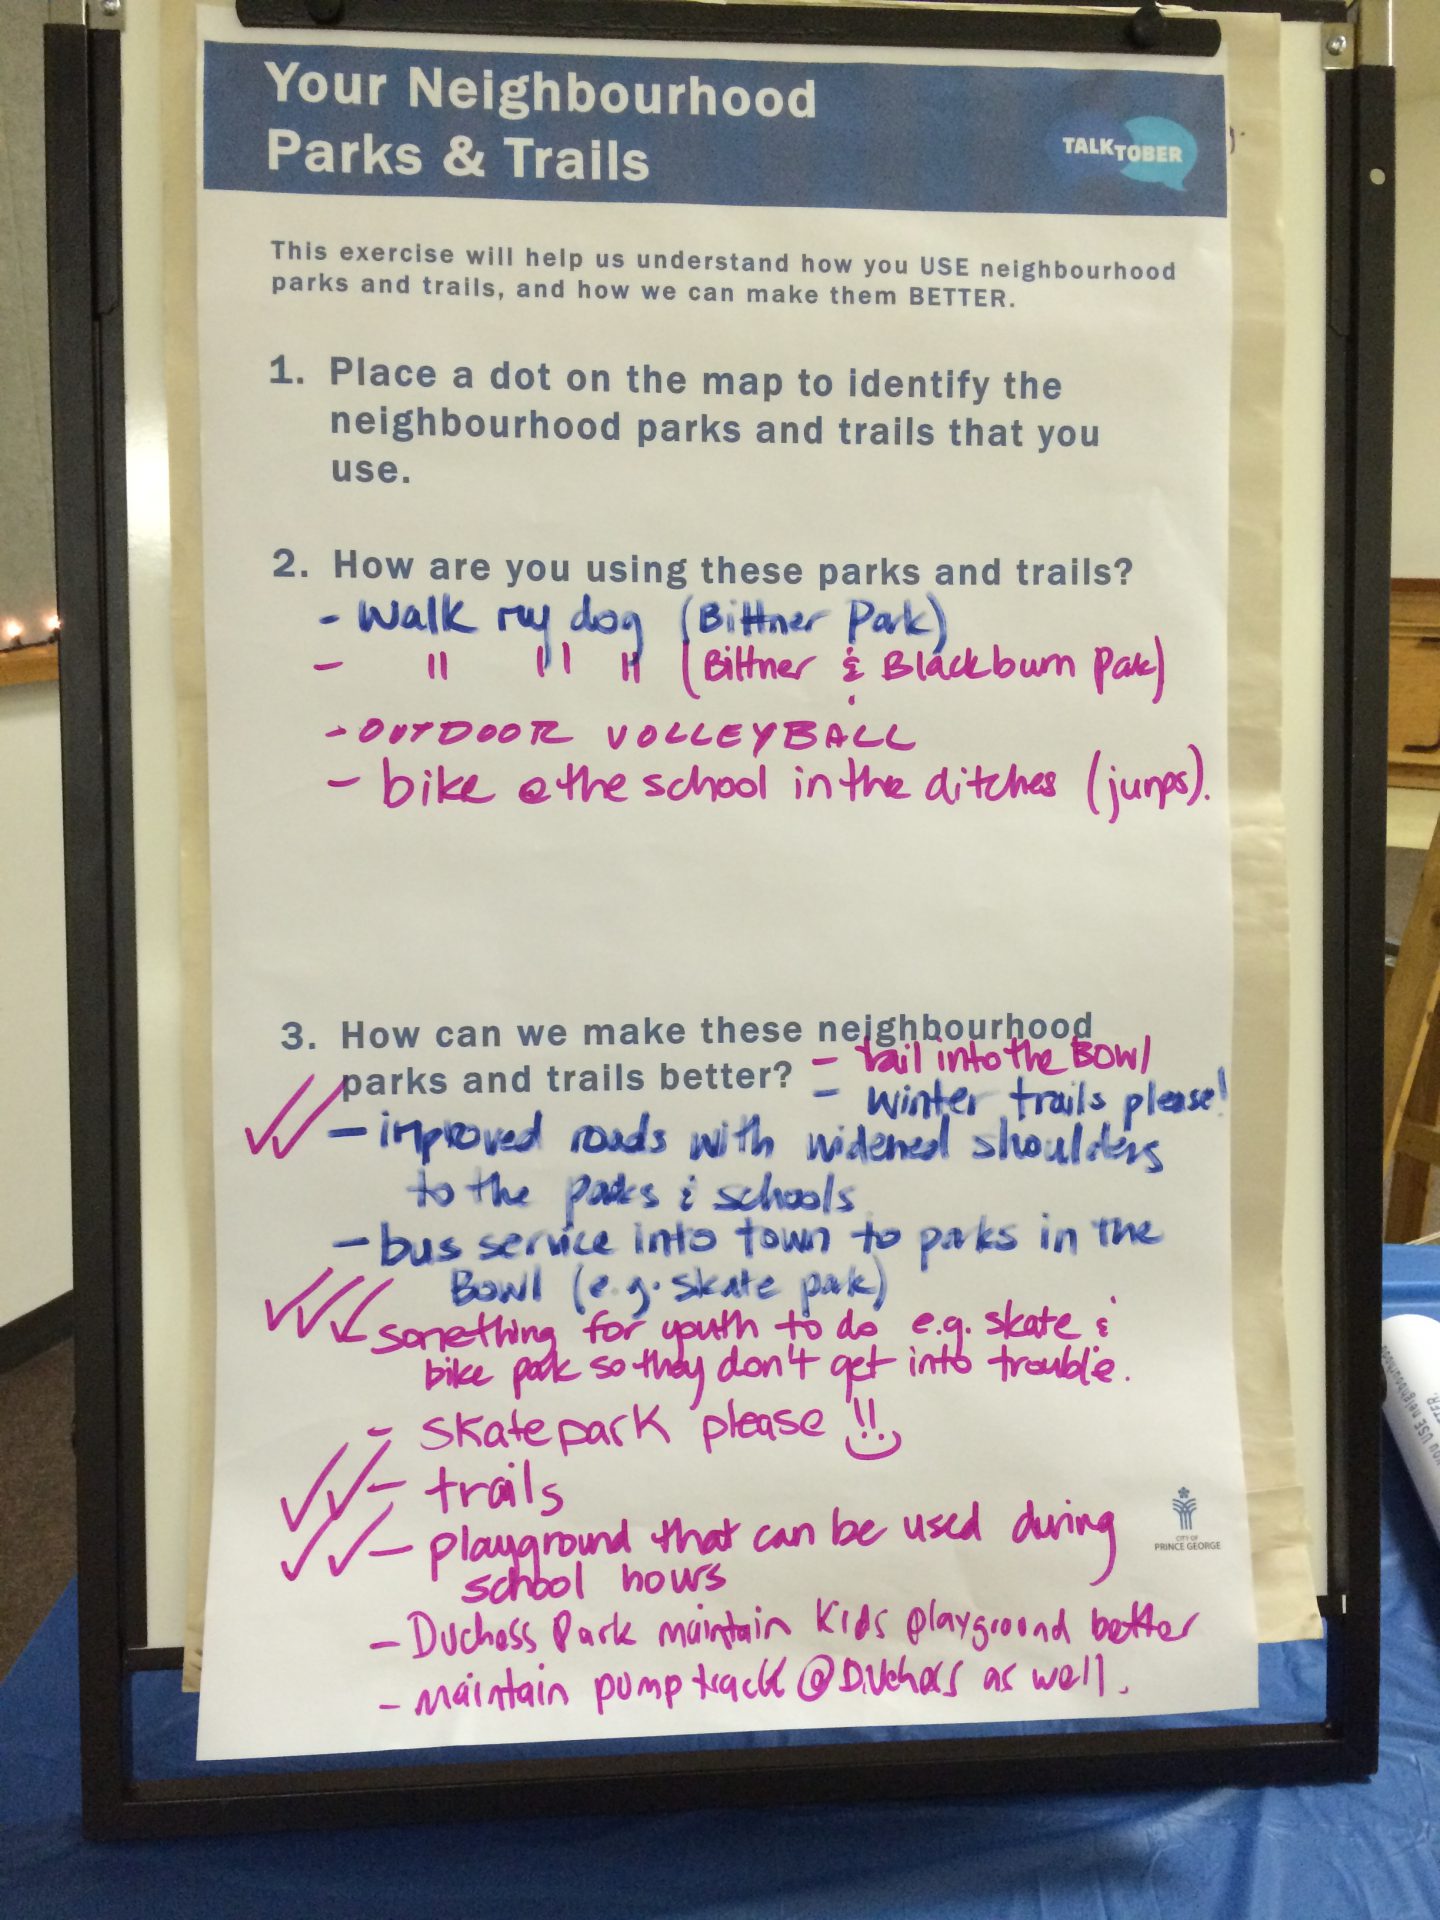 Your Neighbourhood
Parks & Trails
TALKTOBER
This exercise will help us understand how you USE neighbourhood
parks and trails, and how we can make them BETTER.
1. Place a dot on the map to identify the
neighbourhood parks and trails that you
use.
2. How are you using these parks and trails?
- Walk my dog (Bittner Park)
- " " " (Bittner & Blackburn Park)
- OUTDOOR VOLLEYBALL
- bike @ the school in the ditches (jumps).
3. How can we make these neighbourhood
parks and trails better?
- trail into the BOWl
- winter trails please!
✓✓ - improved roads with widened shoulders
to the parks & schools
- bus service into town to parks in the
Bowl (e.g. skate park)
✓✓✓ - something for youth to do e.g. skate &
bike park so they don't get into trouble.
- skatepark please !!
✓✓ - trails
✓✓ - playground that can be used during
school hours
- Duchess Park maintain kids playground better
- maintain pump track @ Duchess as well.
CITY OF
PRINCE GEORGE
you USE neighbourhood